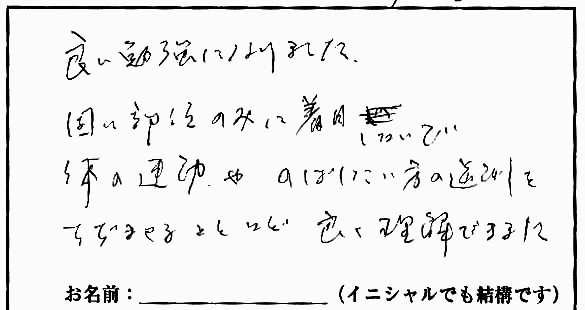 良い勉強になりました。
固い部位のみに着目しないで
体の運動や のばしたい方の逆側を
ちぢませることなど 良く理解できました
お名前：＿＿＿＿＿＿＿＿＿＿＿＿（イニシャルでも結構です）